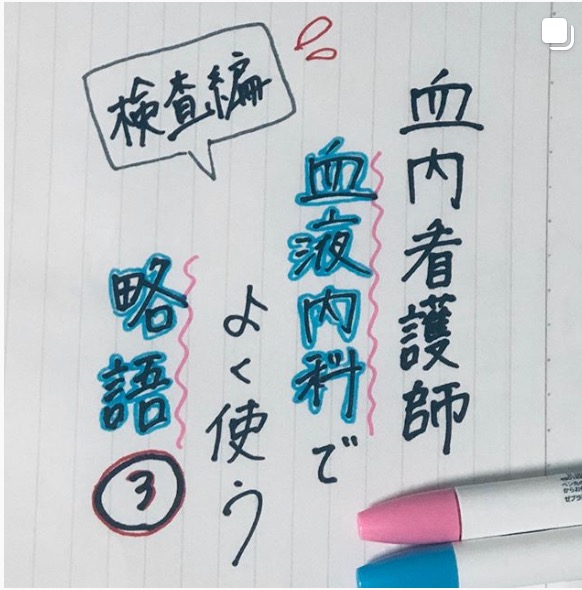 血内看護師
血液内科で
よく使う
略語③
検査編